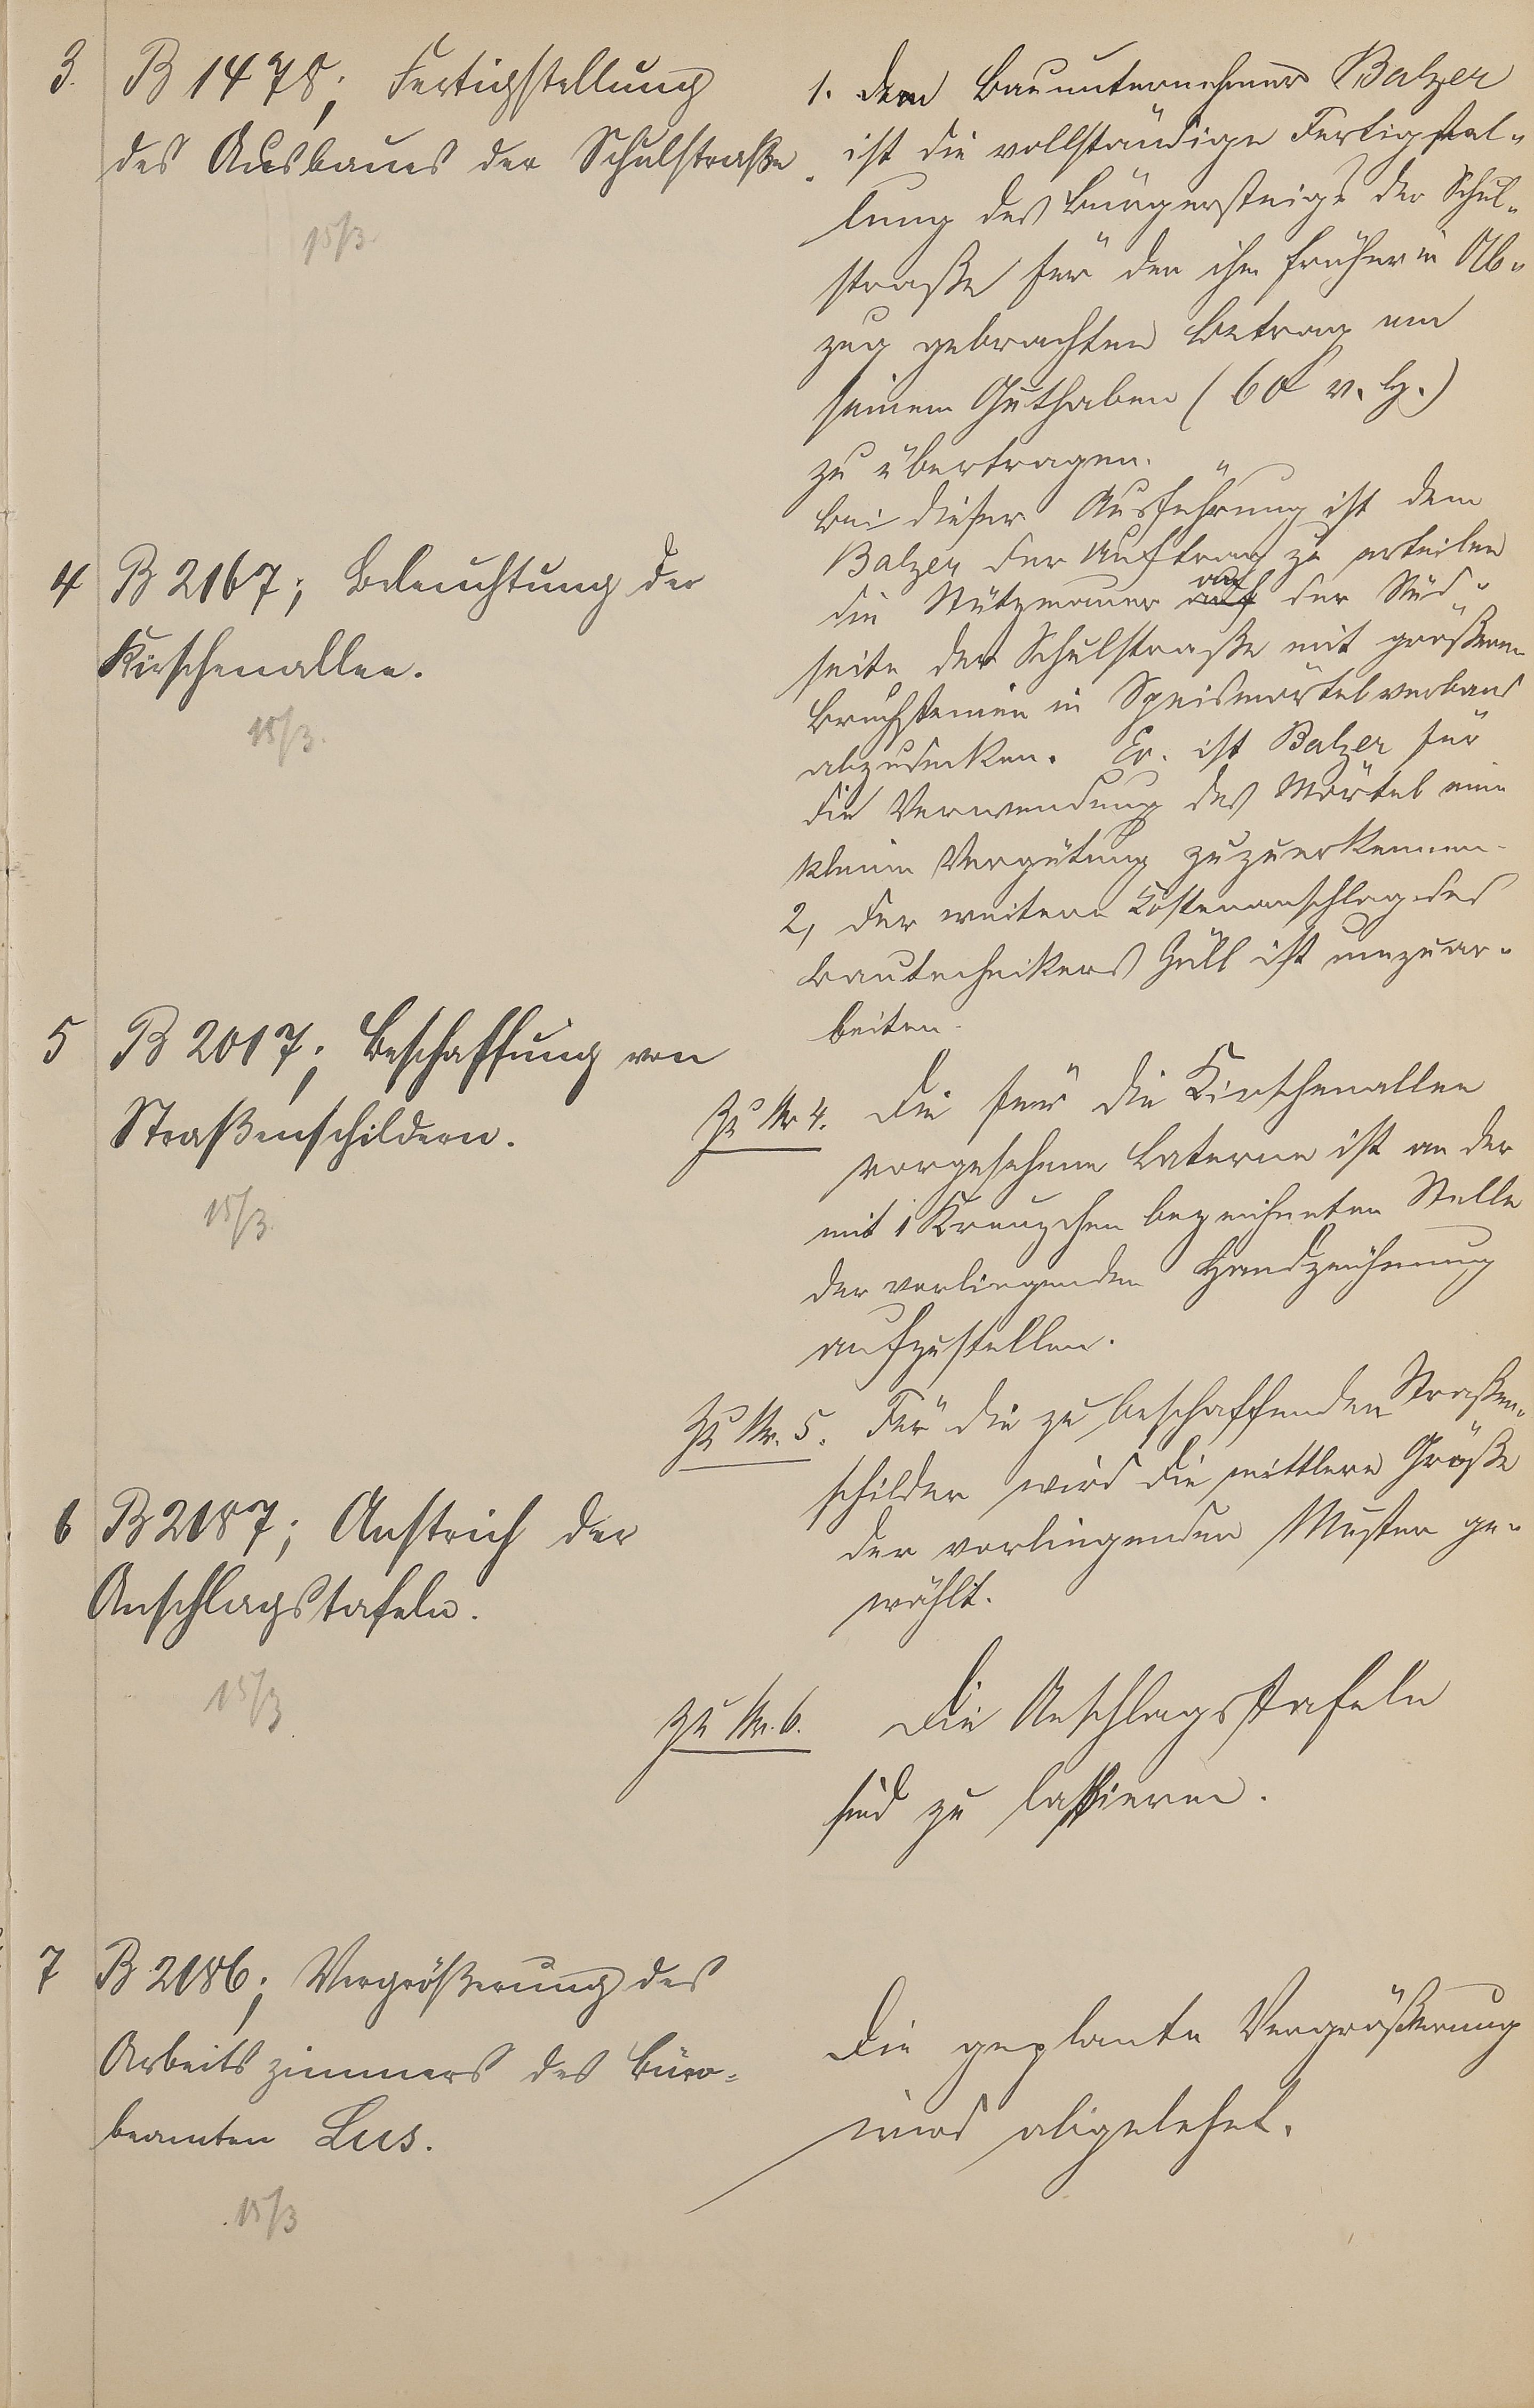 3. B 1478; Fertigstellung
des Ausbaues der Schulstraße.
15/3.
1. dem Bauunternehmer Balzer
ist die vollständige Fertigstel-
lung des Bürgersteigs der Schul-
straße für den ihm früher in Ab-
zug gebrachten Betrag von
seinem Guthaben (60 v. H.)
zu übertragen.
Bei dieser Ausführung ist dem
Balzer der Auftrag zu erteilen
die Stützmauer auf der Süd-
seite der Schulstraße mit größeren
Bruchsteinen in Speismörtelverband
abzudecken. Ev. ist Balzer für
die Verwendung des Mörtel eine
kleine Vergütung zuzuerkennen.
2, der weitere Kostenanschlag des
Bautechnikers Güll ist umzuar-
beiten.
4 B 2167; Beleuchtung der
Kirschenallee.
15/3.
Zu Nr 4. Die für die Kirschenallee
vorgesehene Laterne ist an der
mit 1 Kreuzchen bezeichneten Stelle
der vorliegenden Handzeichnung
aufzustellen.
5 B 2017; Beschaffung von
Straßenschildern.
15/3.
Zu Nr. 5. Für die zu beschaffenden Straßen-
schilder wird die mittlere Größe
der vorliegenden Muster ge-
wählt.
6 B 2187; Anstrich der
Anschlagstafeln.
15/3
Zu Nr. 6. Die Anschlagstafeln
sind zu lassieren.
7 B 2186; Vergrößerung des
Arbeitszimmers des Büro-
beamten Lus.
15/3
Die geplante Vergrößerung
wird abgelehnt.